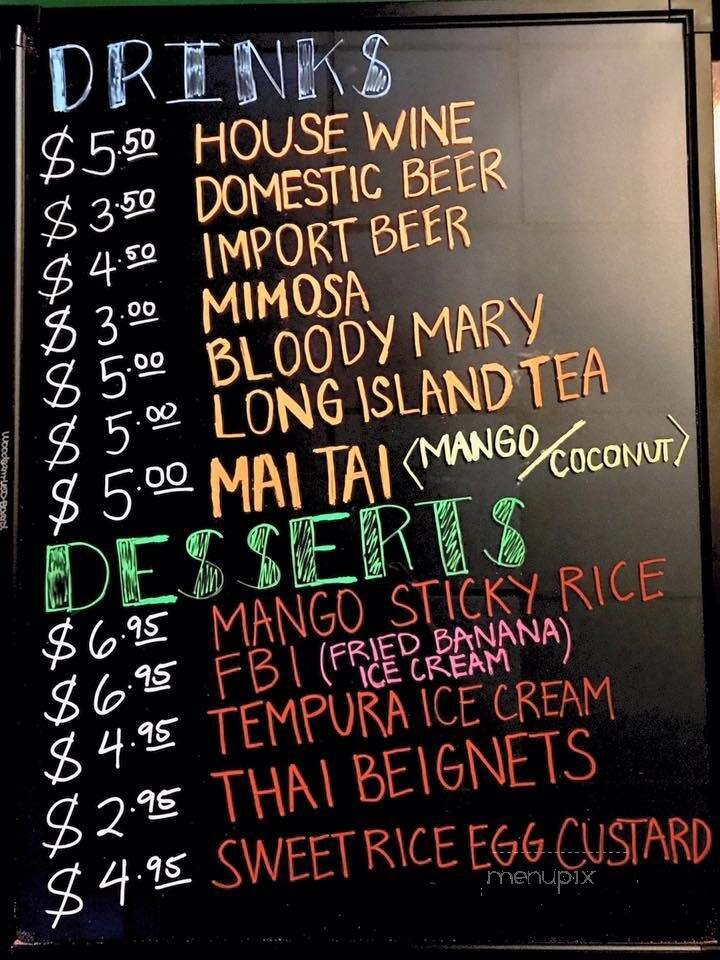 DRINKS
$5.50 HOUSE WINE
$3.50 DOMESTIC BEER
$4.50 IMPORT BEER
$3.00 MIMOSA
$5.00 BLOODY MARY
$5.00 LONG ISLAND TEA
$5.00 MAI TAI <MANGO/COCONUT>
DESSERTS
$6.95 MANGO STICKY RICE
$6.95 FBI (FRIED BANANA)
ICE CREAM
$4.95 TEMPURA ICE CREAM
$2.95 THAI BEIGNETS
$4.95 SWEET RICE EGG CUSTARD
menupix